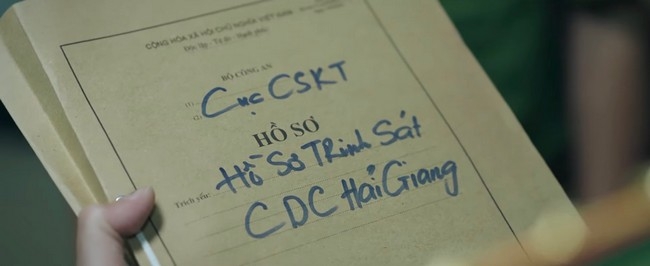 CỘNG HÒA XÃ HỘI CHỦ NGHĨA VIỆT NAM
Độc lập - Tự do - Hạnh phúc
BỘ CÔNG AN
(1) Cục CSKT
(2)
HỒ SƠ
Trích yếu: Hồ Sơ TRinh Sát
CDC Hải Giang